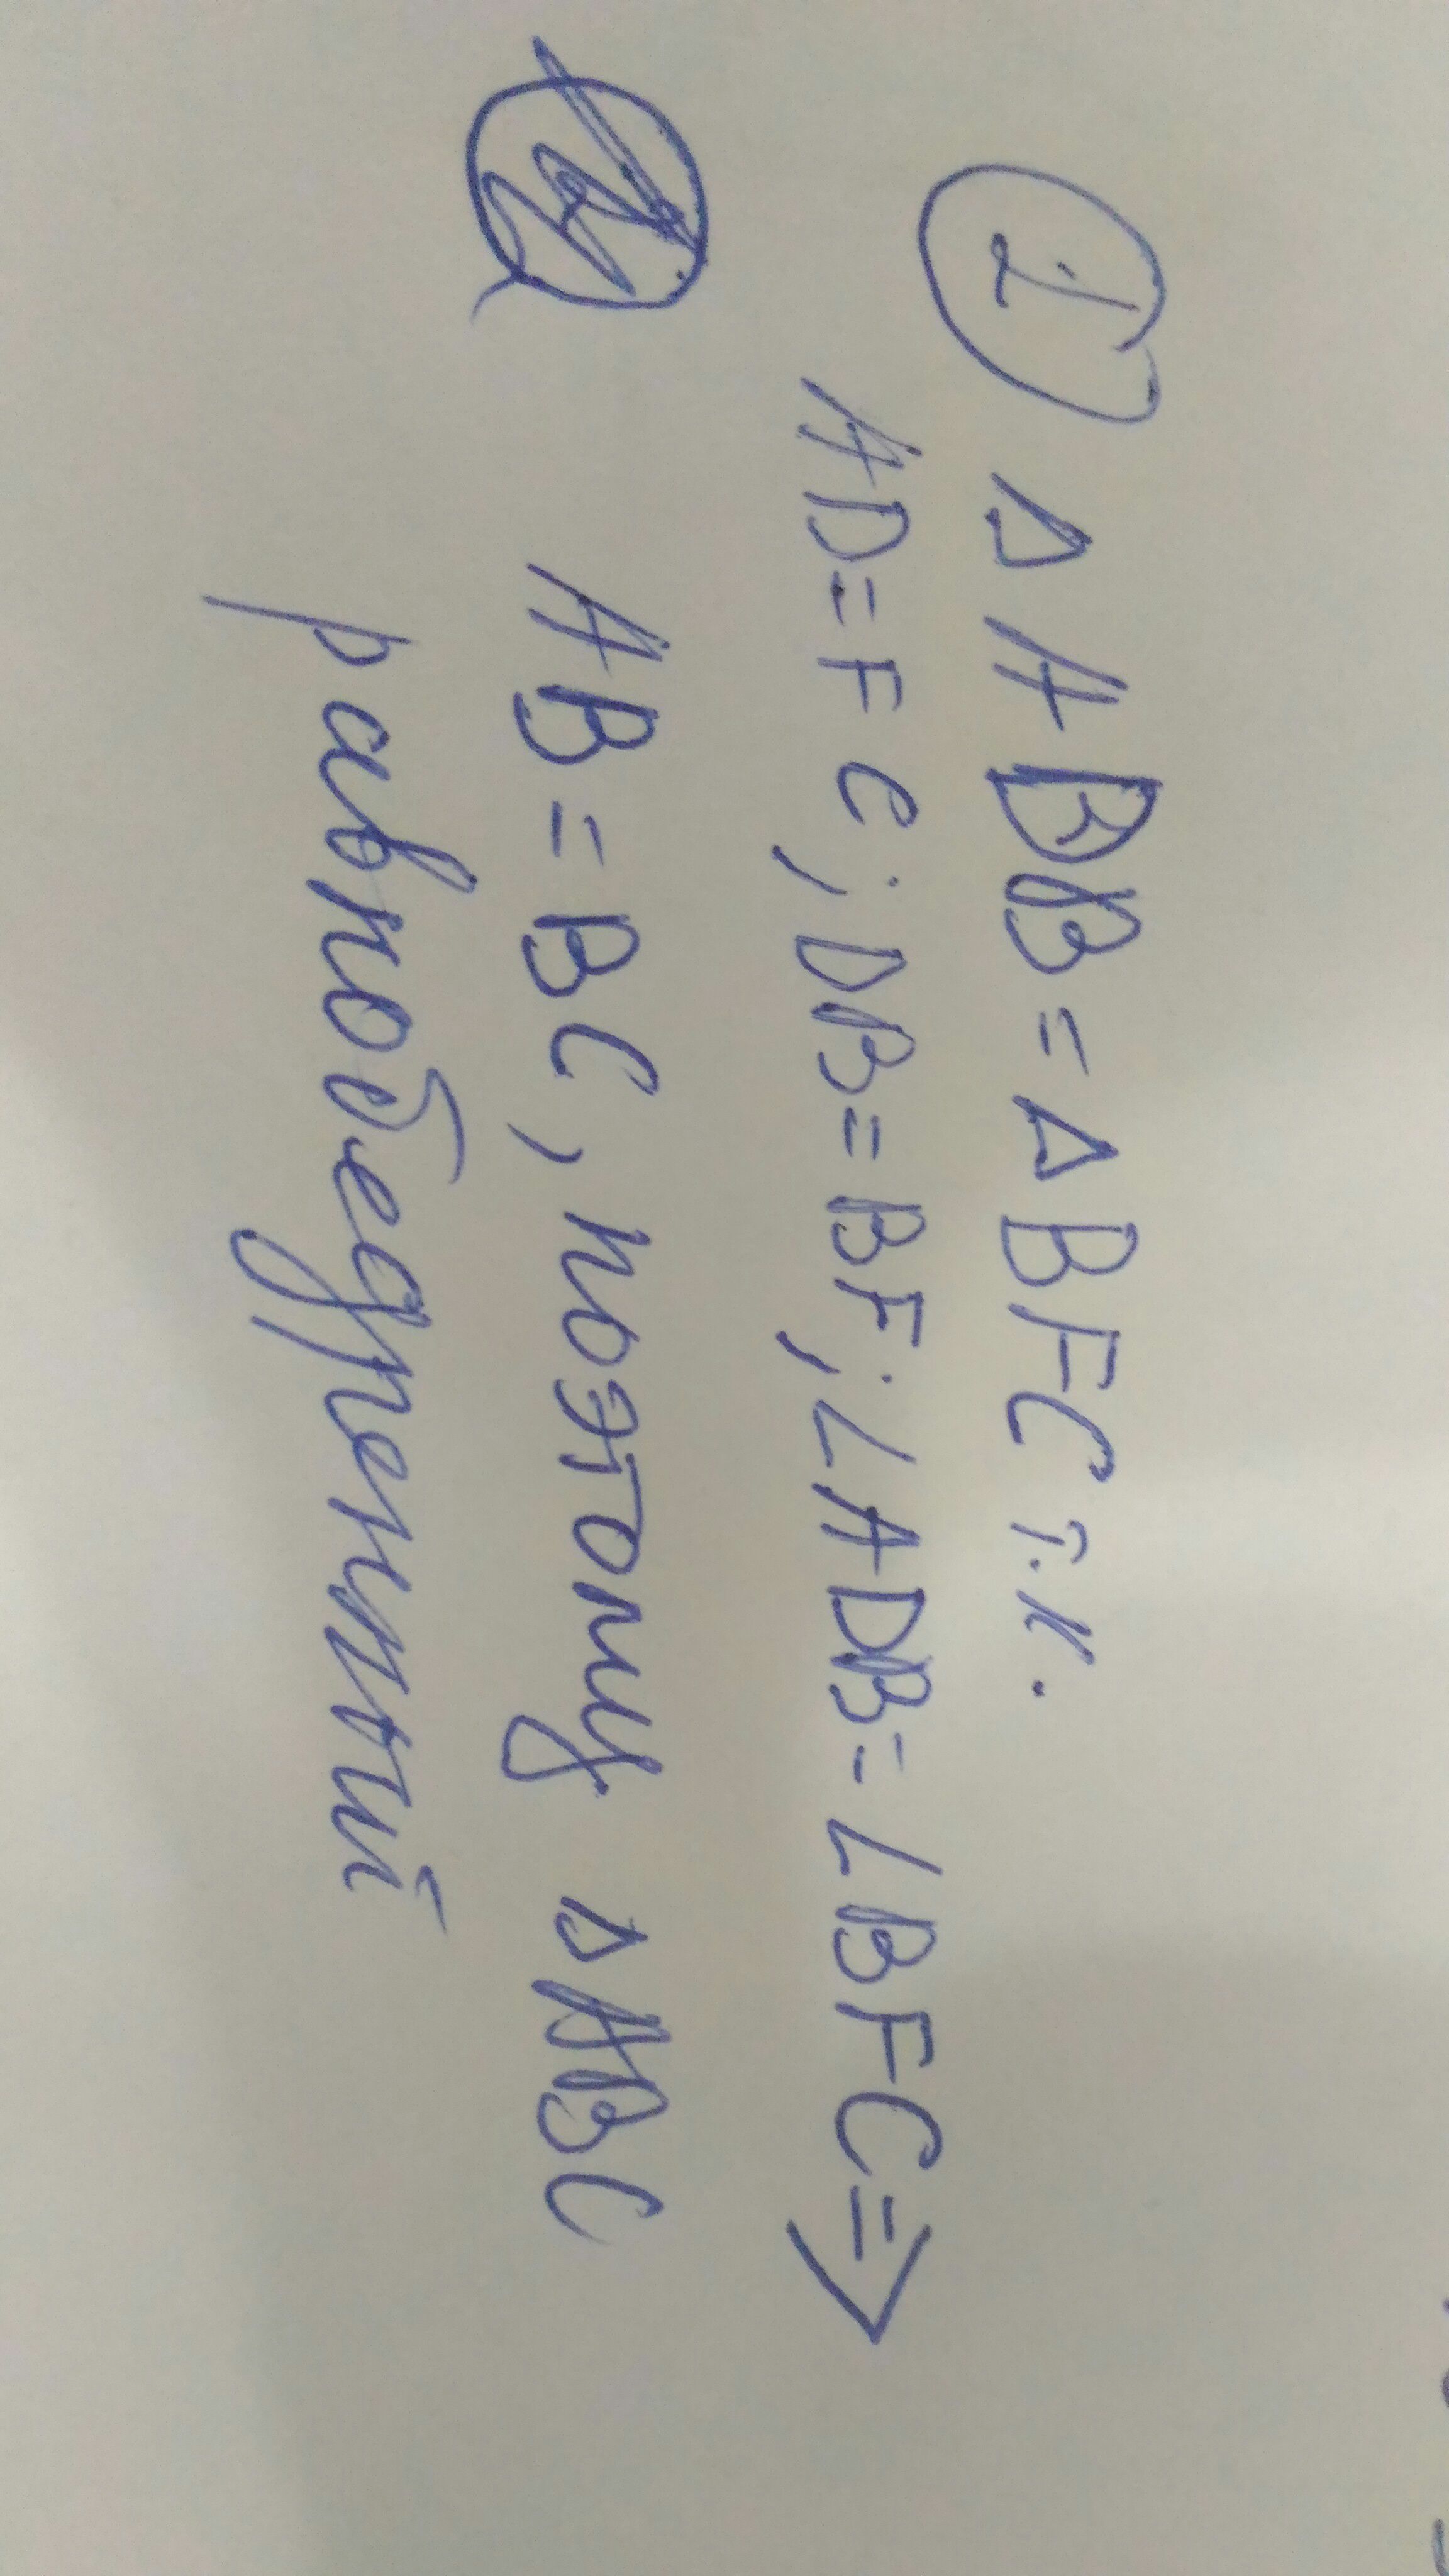 1 Δ ADB = Δ BFC т.к.
AD = FC; DB = BF; ∠ADB = ∠BFC ⇒
AB = BC, поэтому Δ ABC
равнобедренный